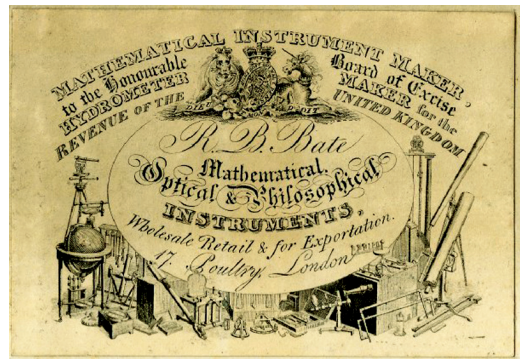 MATHEMATICAL INSTRUMENT MAKER,
to the Honourable Board of Excise
HYDROMETER MAKER for the
REVENUE OF THE UNITED KINGDOM
DIEU ET MON DROIT
R. B. Bate
Mathematical,
Optical & Philosophical
INSTRUMENTS,
Wholesale Retail & for Exportation.
17, Poultry, London